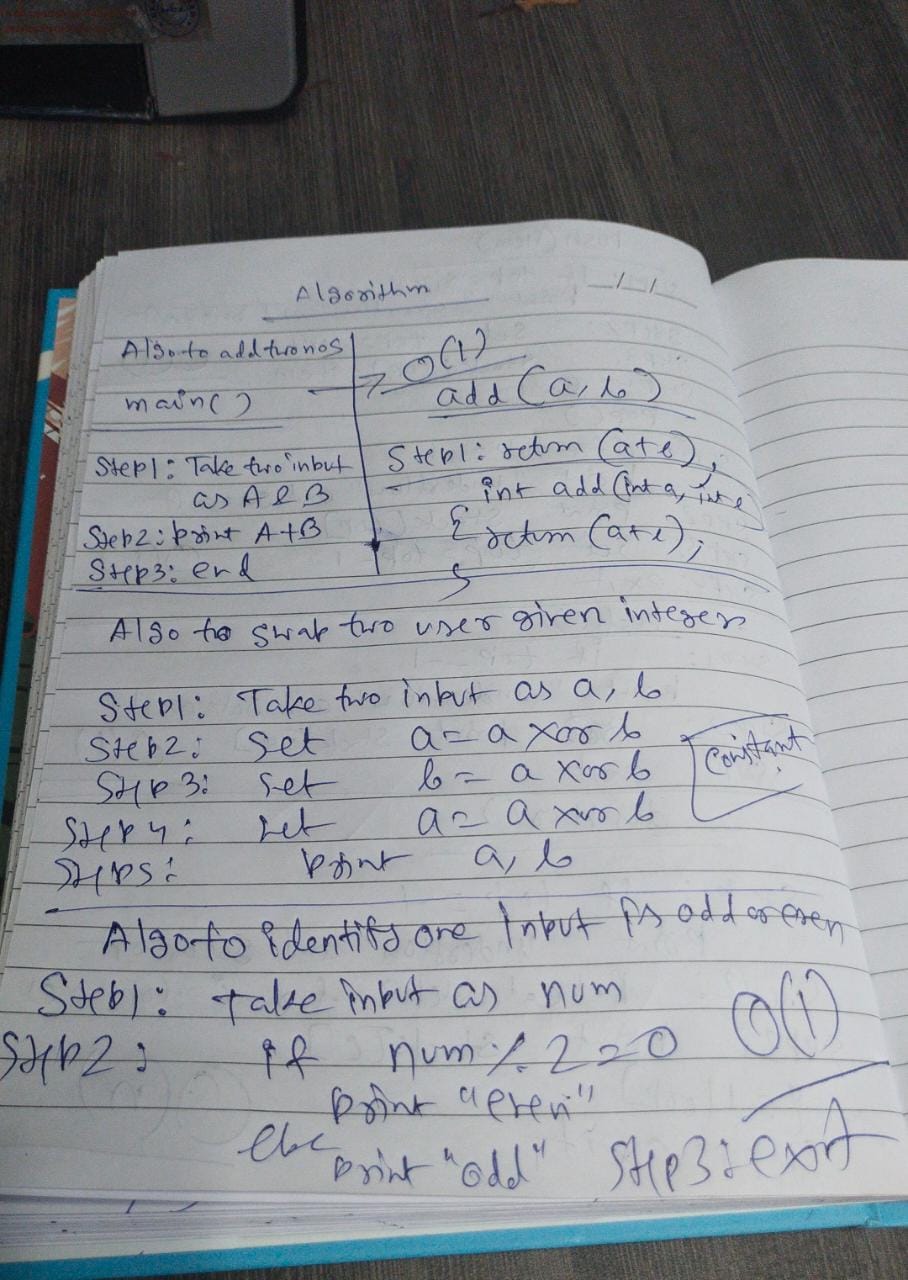 Algorithm
Algo to add two nos
main()
Step1: Take two input
as A & B
Step2: print A+B
Step3: end
O(1)
add (a, b)
Step1: return (a+b);
int add (int a, int b)
{ return (a+b);
}
Algo to swap two user given integers
Step1: Take two input as a, b
Step2: Set a = a xor b
Step3: set b = a xor b
Step4: set a = a xor b
Step5: print a, b
Constant
Algo to identify one Input is odd or even
Step1: Take input as num
O(1)
Step2: if num % 2 = 0
print "even"
else
print "odd"
Step3: exit